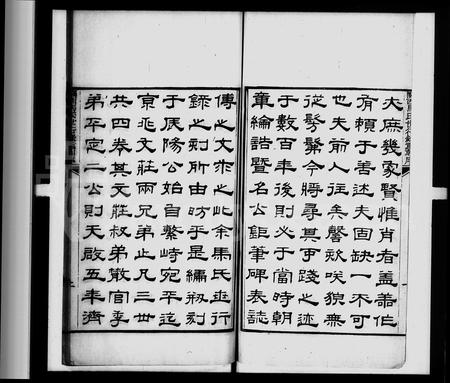 夫庶幾家賢惟肖者蓋善作
有賴于善述夫固缺一不可
也夫前人往矣謦欬咲貌無
從髣髴今將尋其可踐之迹
于數百年後則必于當時朝
章綸誥暨名公鉅筆碑表誌
傳之文求之此余馬氏世行
錄之刻所由昉乎是編初刻
于辰陽公始自繁峙宛平迄
京兆文莊兩兄弟止凡三世
共四卷其文莊叔弟散官季
弟平定二公則天啟五年濟